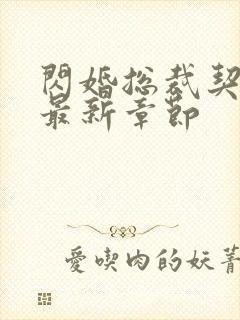 閃婚総裁契
最新章節
愛喫肉的妖菁